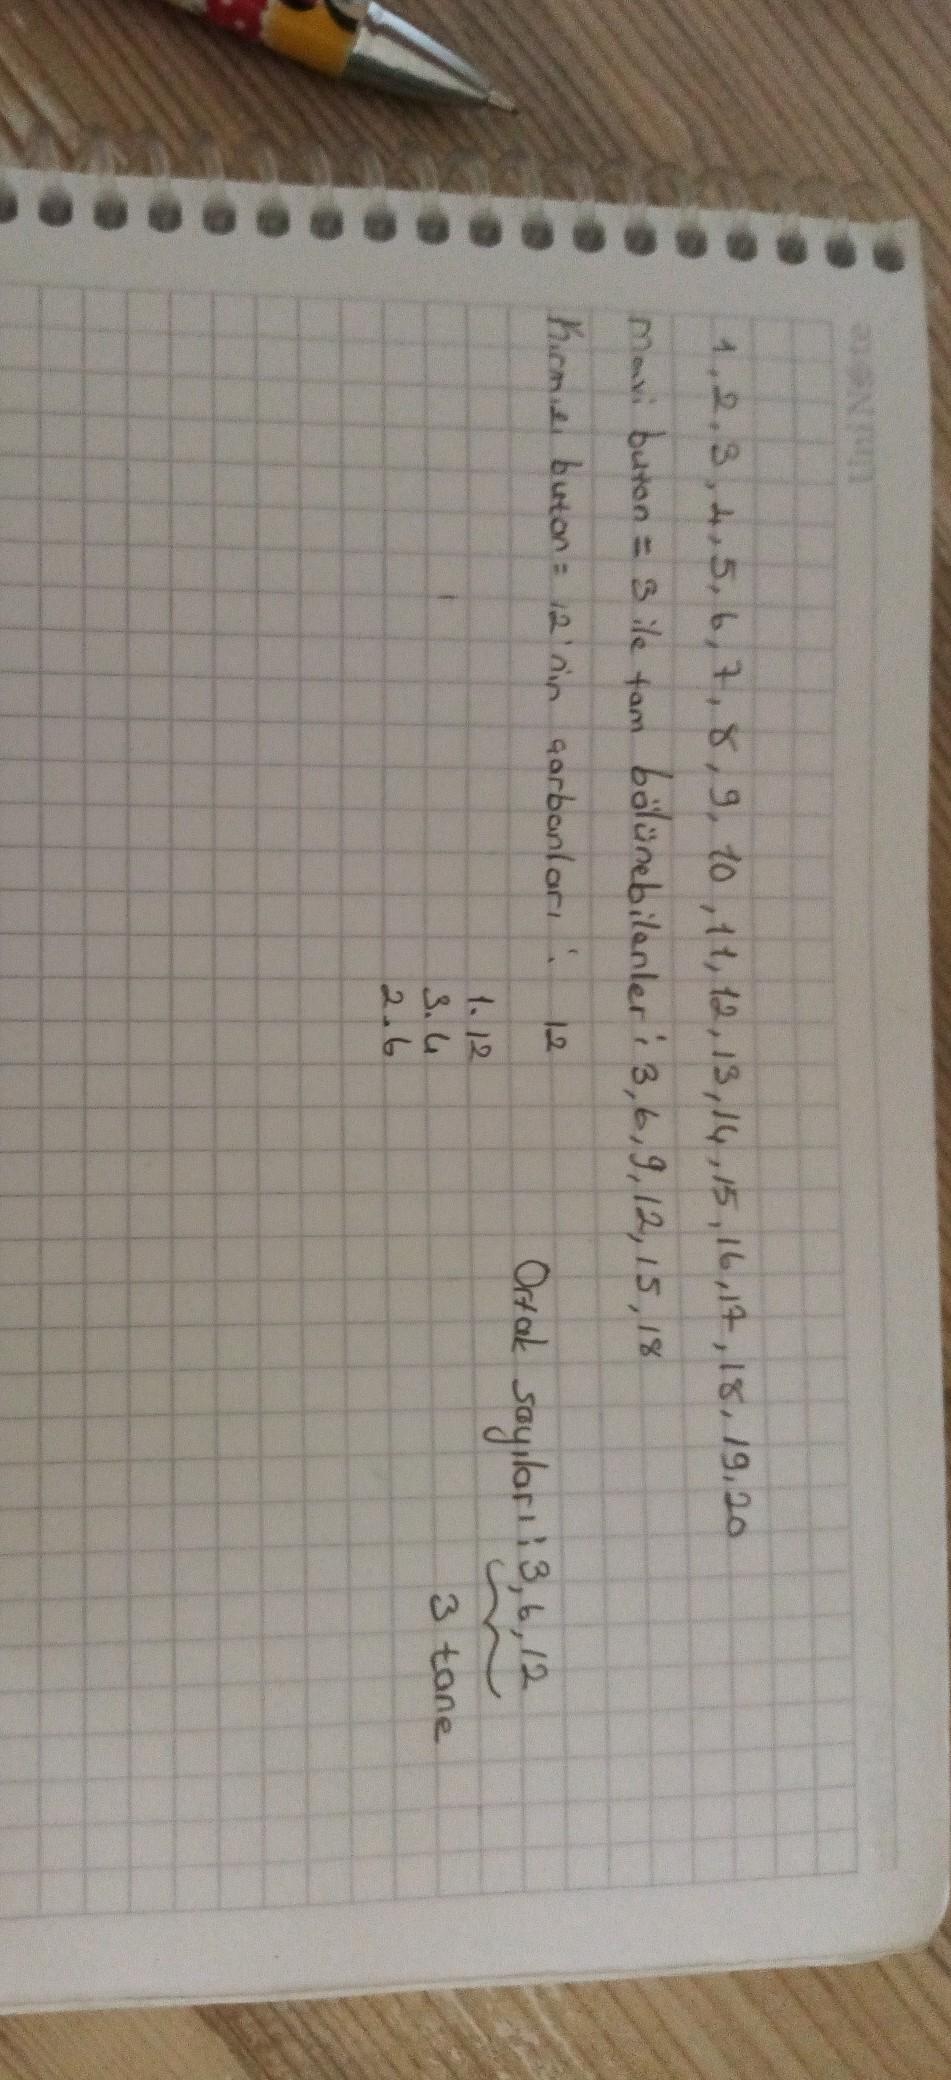 1, 2, 3, 4, 5, 6, 7, 8, 9, 10, 11, 12, 13, 14, 15, 16, 17, 18, 19, 20
Mavi buton = 3 ile tam bölünebilenler : 3, 6, 9, 12, 15, 18
Kırmızı buton = 12'nin çarpanları : 12
1.12
3.4
2.6
Ortak sayıları : 3, 6, 12
3 tane